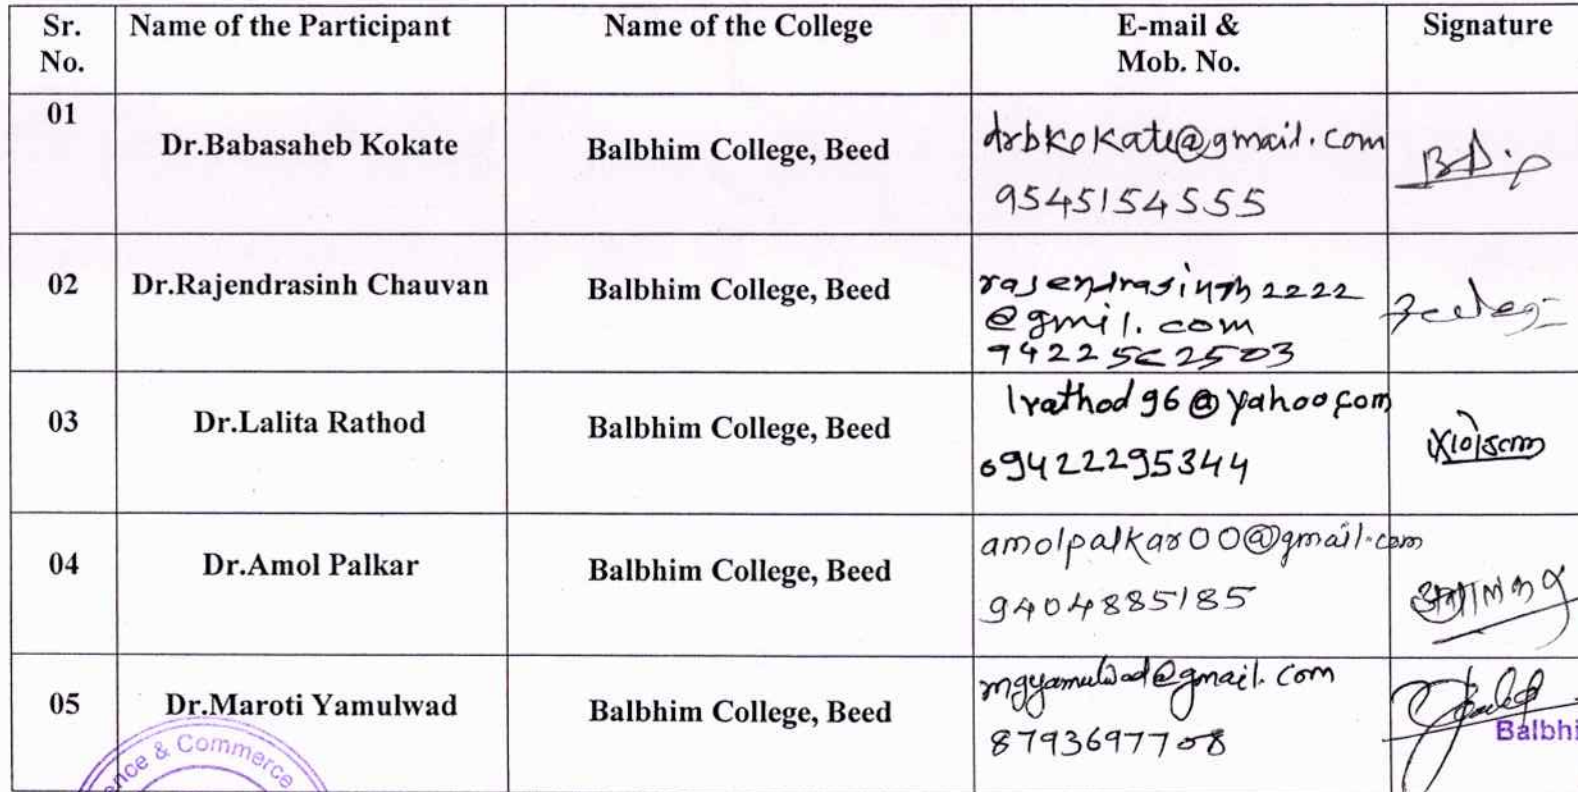 Sr. No. Name of the Participant Name of the College E-mail & Mob. No. Signature
01 Dr.Babasaheb Kokate Balbhim College, Beed drbkokate@gmail.com
9545154555
02 Dr.Rajendrasinh Chauvan Balbhim College, Beed rajendrasinh2222
@gmil.com
03 Dr.Lalita Rathod Balbhim College, Beed lrathod96@yahoo.com
09422295344
04 Dr.Amol Palkar Balbhim College, Beed amolpalkar00@gmail.com
9404885185
05 Dr.Maroti Yamulwad Balbhim College, Beed mgyamulwad@gmail.com
8793697708
Balbhi
ence & Commerce